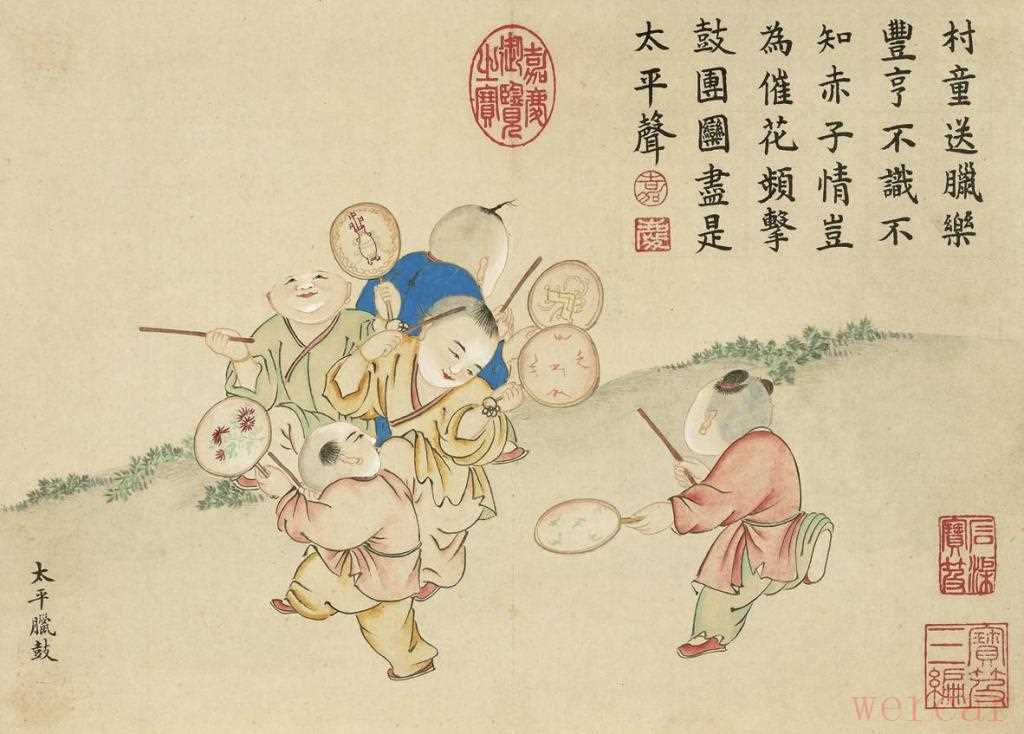 村童送臘樂
豐亨不識不
知赤子情豈
為催花頻擊
鼓團圞盡是
太平聲
嘉
慶
嘉慶御覽之寶
太平臘鼓
石渠寶笈
寶笈三編
wercar